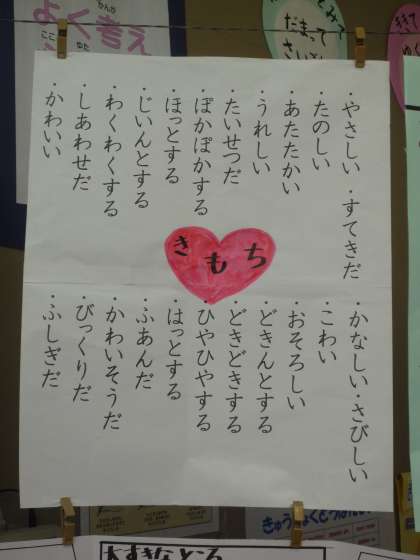 ・やさしい・すてきだ
・たのしい
・あたたかい
・うれしい
・たいせつだ
・ぽかぽかする
・ほっとする
・じいんとする
・わくわくする
・しあわせだ
・かわいい
きもち
・かなしい・さびしい
・こわい
・おそろしい
・どきんとする
・どきどきする
・ひやひやする
・はっとする
・ふあんだ
・かわいそうだ
・びっくりだ
・ふしぎだ
よく考え
だまって